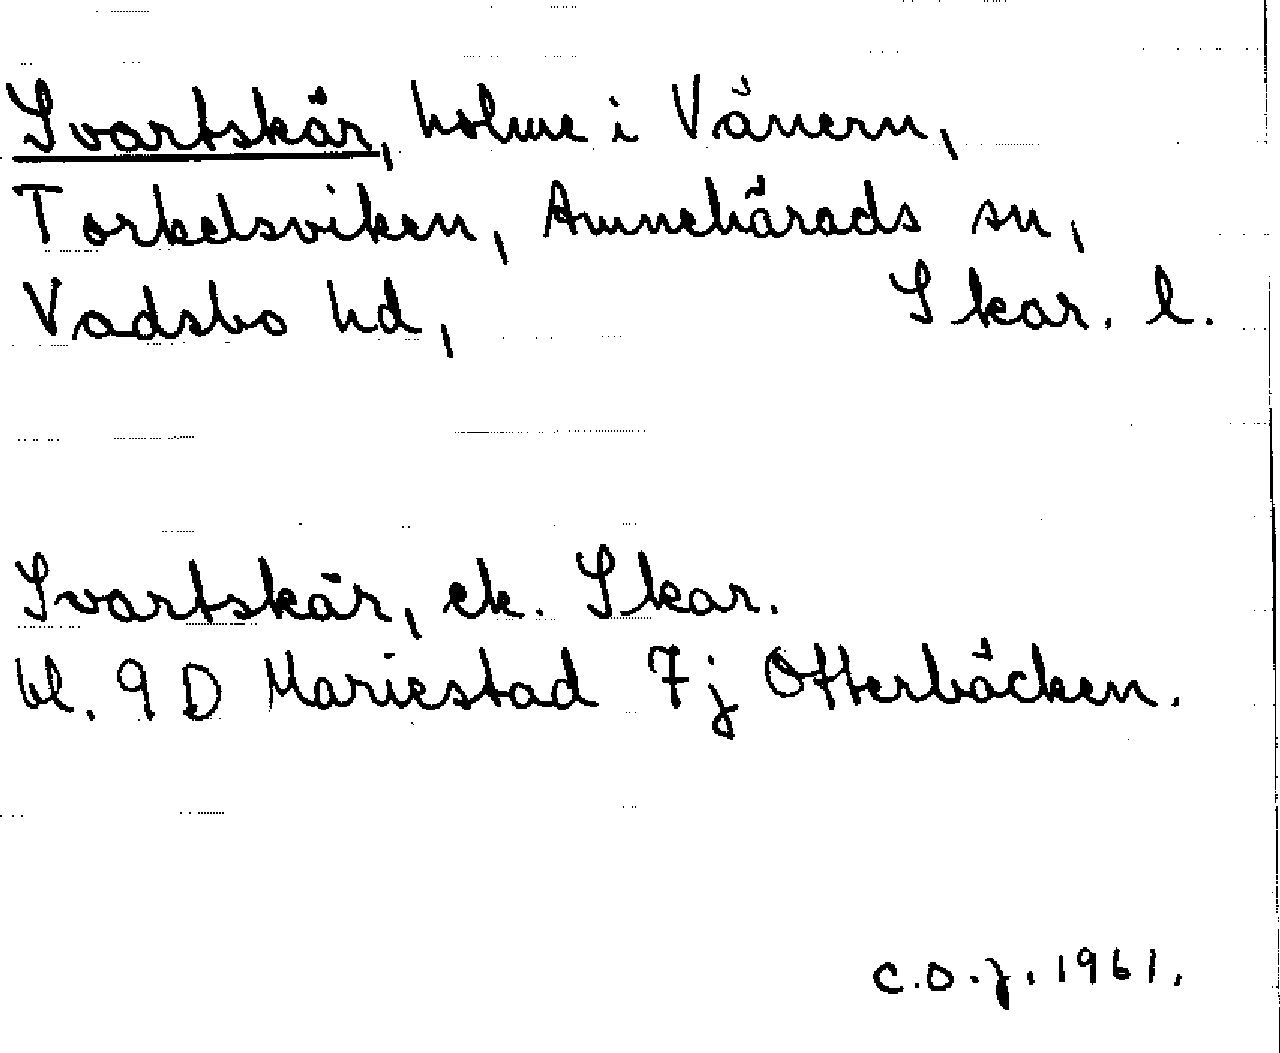 Svartskär, holme i Vänern,
Torkelsviken, Amnehärads sn,
Vadsbo hd, Skar. l.
Svartskär, ek. Skar.
bl. 9 D Mariestad 7j Otterbäcken.
C.O.J. 1961.